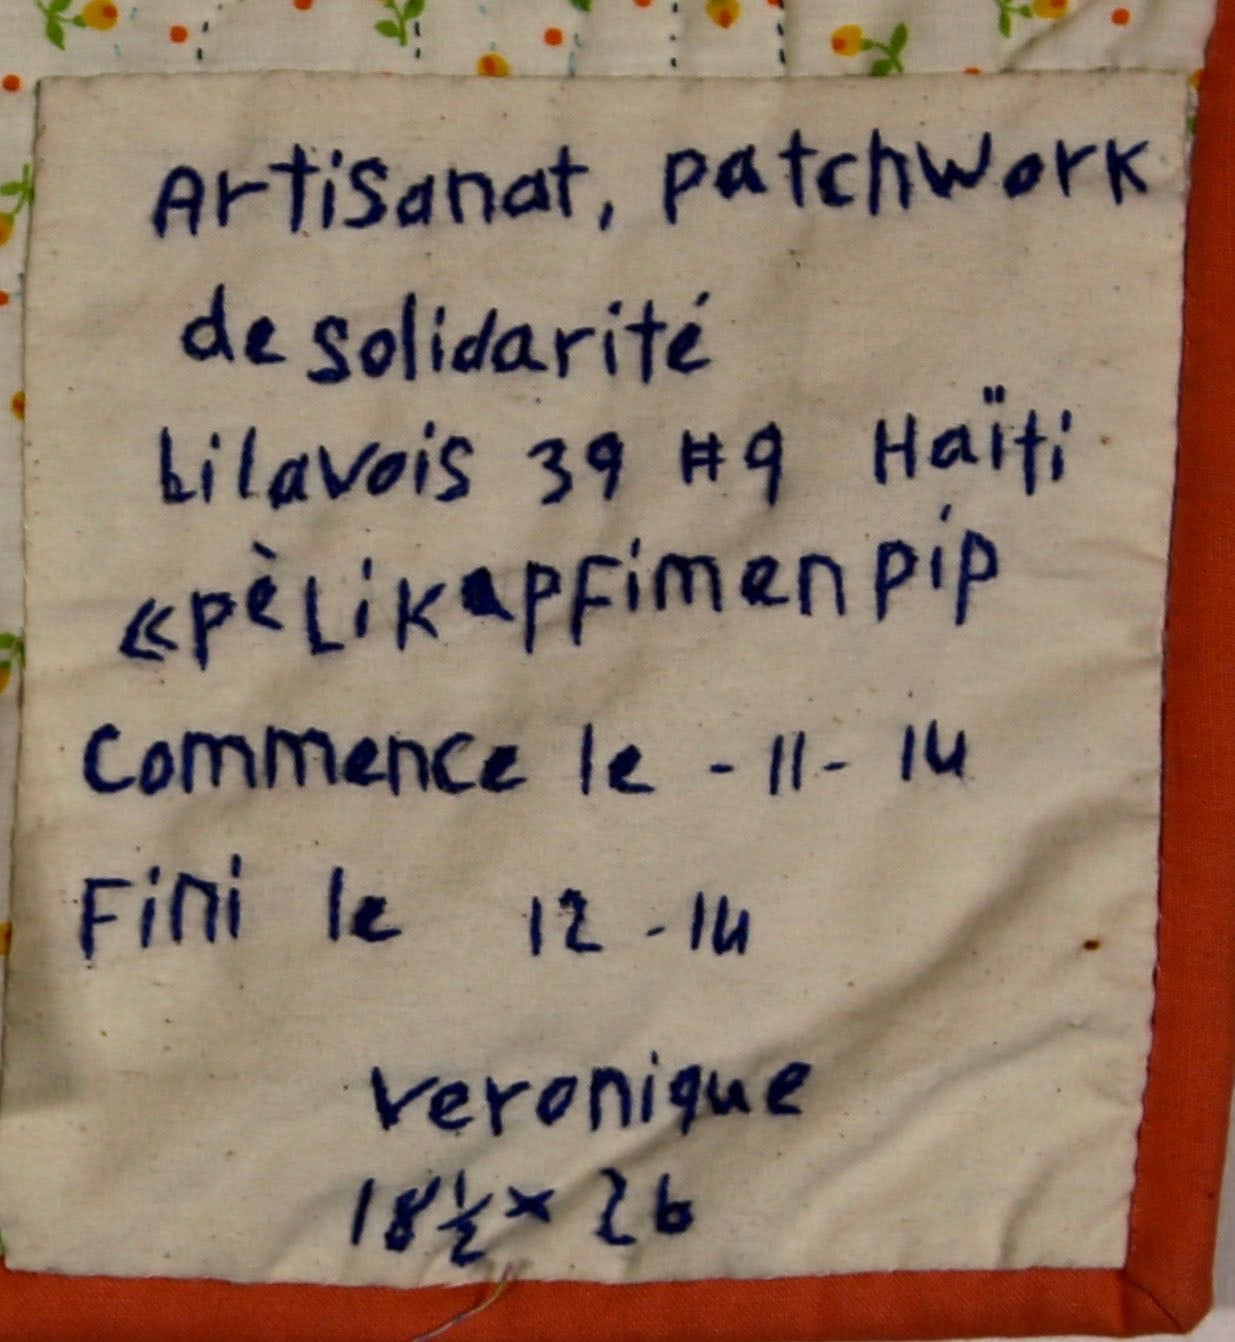 Artisanat, patchwork
de solidarité
Lilavois 39 #9 Haïti
«pèLik ap Fimen pip
Commence le - 11 - 14
Fini le 12 - 14
Veronique
18 ½ x 26